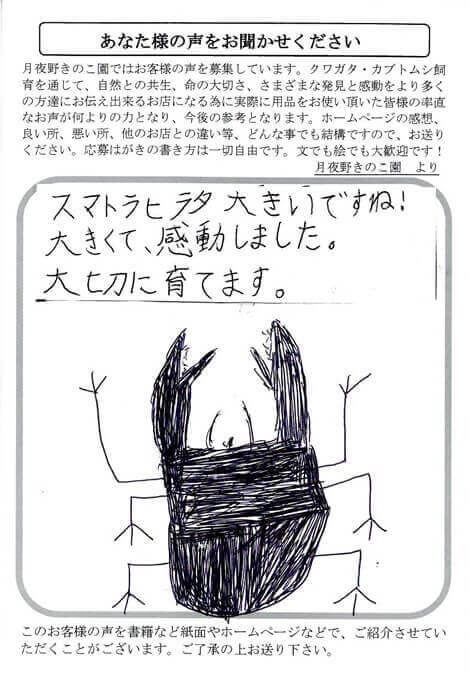 あなた様の声をお聞かせください
月夜野きのこ園ではお客様の声を募集しています。クワガタ・カブトムシ飼
育を通じて、自然との共生、命の大切さ、さまざまな発見と感動をより多く
の方達にお伝え出来るお店になる為に実際に用品をお使い頂いた皆様の率直
なお声が何よりの力となり、今後の参考となります。ホームページの感想、
良い所、悪い所、他のお店との違い等、どんな事でも結構ですので、お送り
ください。応募はがきの書き方は一切自由です。文でも絵でも大歓迎です！
月夜野きのこ園　より
スマトラヒラタ 大きいですね!
大きくて、感動しました。
大切に育てます。
このお客様の声を書籍など紙面やホームページなどで、ご紹介させてい
ただくことがございます。ご了承の上お送り下さい。